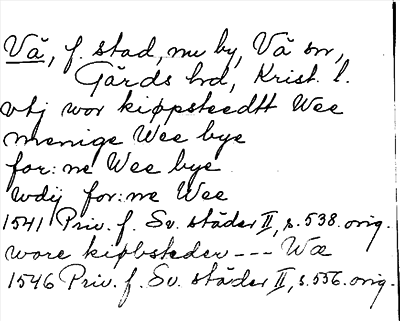 Vä, f. stad, nu by, Vä sn,
Gärds hd, Krist. l.
vtj wor kiøpsteedtt Wee
menige Wee bye
for:ne Wee bye
wdij for:ne Wee
1541 Priv. f. Sv. städer II, s. 538. orig.
wore kiøbsteder --- Wæ
1546 Priv. f. Sv. städer II, s. 556. orig.